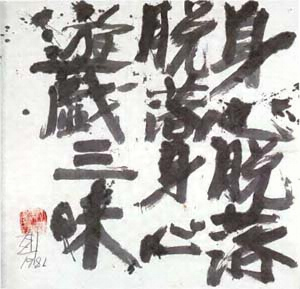 身心脱落
脱落身心
遊戯三昧
1986